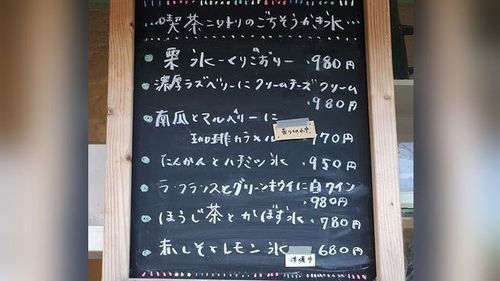 喫茶ニワトリのごちそうかき氷
栗氷-くりごおり- ・980円
濃厚ラズベリーにクリームチーズクリーム
・980円
南瓜とマルベリーに
珈琲カラメル 770円
売り切れ中
たんかんとハチミツ氷 ・950円
ラ・フランスとグリーンキウイに白ワイン
・980円
ほうじ茶とかぼす氷 ・780円
赤しそとレモン氷 680円
準備中